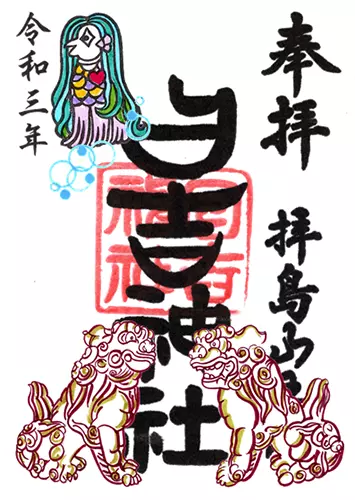 奉拝
拝島山王
日吉神社
令和三年